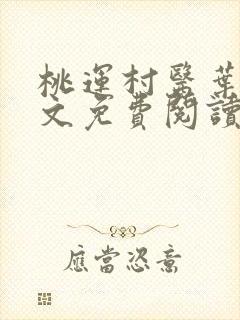 桃運村醫葉
文免費閱讀
應當恣意